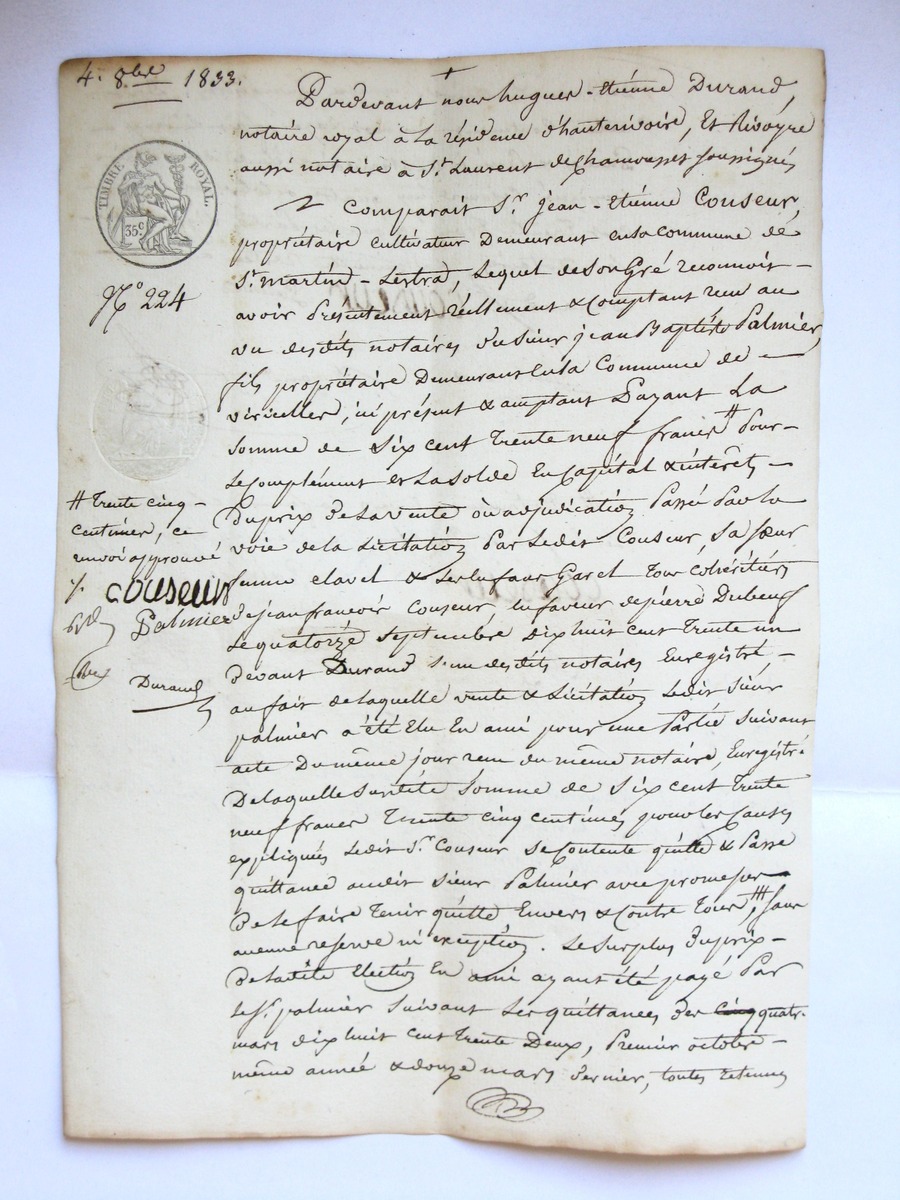 4. 8bre 1833.
TIMBRE ROYAL.
35c
N° 224
Pardevant nous hugues-étiénne Durand,
notaire royal à La résidence d'hauterivoire, Et Rivoyre
aussi notaire à St. Laurent de Chamousset soussignés
Comparait Sr. jean-Etiénne Couseur,
propriétaire cultivateur Demeurant en la commune de
St. martin-Lestra, Lequel de son Gré reconnoit
avoir Présentement réellement & Comptant reçu au
vu desdits notaires du sieur jean Baptiste Palmier,
fils propriétaire Demeurant en la Commune de
viricelles, ici présent & comptant Payant La
Somme de Six cent Trente neuf francs # Pour
Le Complément et La solde En Capital & intérêts
Du prix De La vente ou adjudication Passé Par la
voie de la Licitation Par Ledit Couseur, sa sœur
femme clavel & Les enfans Garel Tous cohéritiers
De jean francois Couseur, En faveur de pierre Dubeuf
Le quatorze Septembre Dix huit cent Trente un
Devant Durand L'un desdits notaires Enregistré
au fait de laquelle vente & Licitation Ledit sieur
palmier a été Elu En ami pour une Partie suivant
acte Du même jour reçu du même notaire, Enregistré
De laquelle susdite Somme de Six cent Trente
neuf francs Trente cinq centimes pour les causes
expliqués Ledit Sr. Couseur Se Contente quitte & Passe
quittance audit sieur Palmier avec promesse
De le faire Tenir quitte Envers & Contre Tous ### sans
aucune reserve ni exception. Le Surplus Du prix
De ladite Election En ami ayant été payé Par
Le sr. palmier Suivant Les quittances des cinq quatre
mars dix huit cent Trente Deux, Premier octobre
même année & douze mars Dernier, toutes retenues
# Trente cinq
centimes, ce
renvoi approuvé
couseur
Palmier
Durand